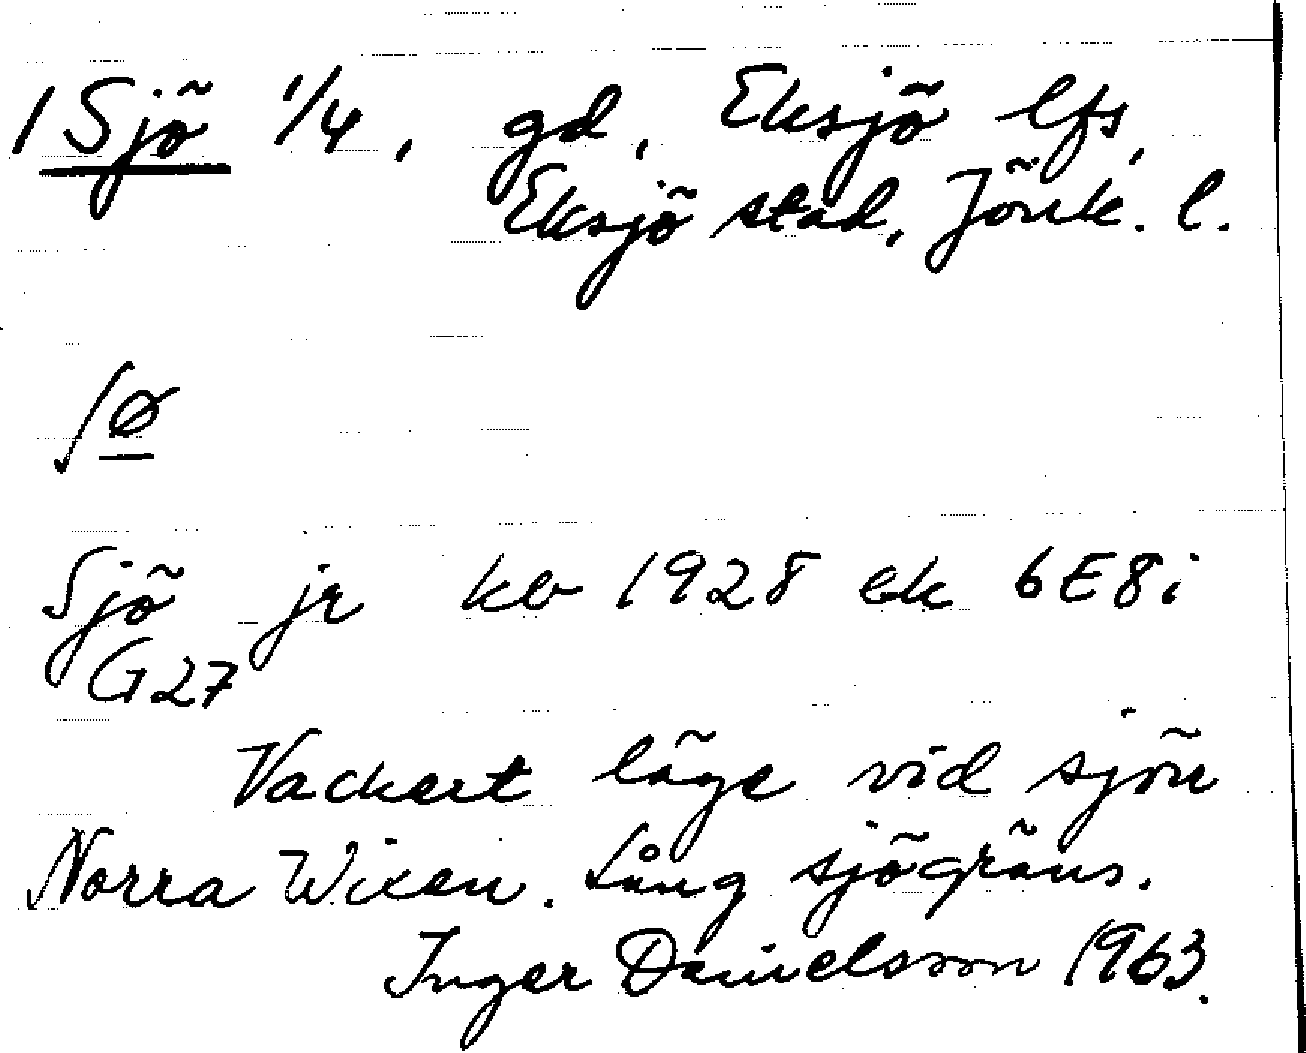 1 Sjö 1/4, gd, Eksjö lfs,
Eksjö stad, Jönk. l.
ʃø
Sjö jr kb 1928 ek 6E8i
G27
Vackert läge vid sjön
Norra Wixen. Lång sjögräns.
Inger Danielsson 1963.